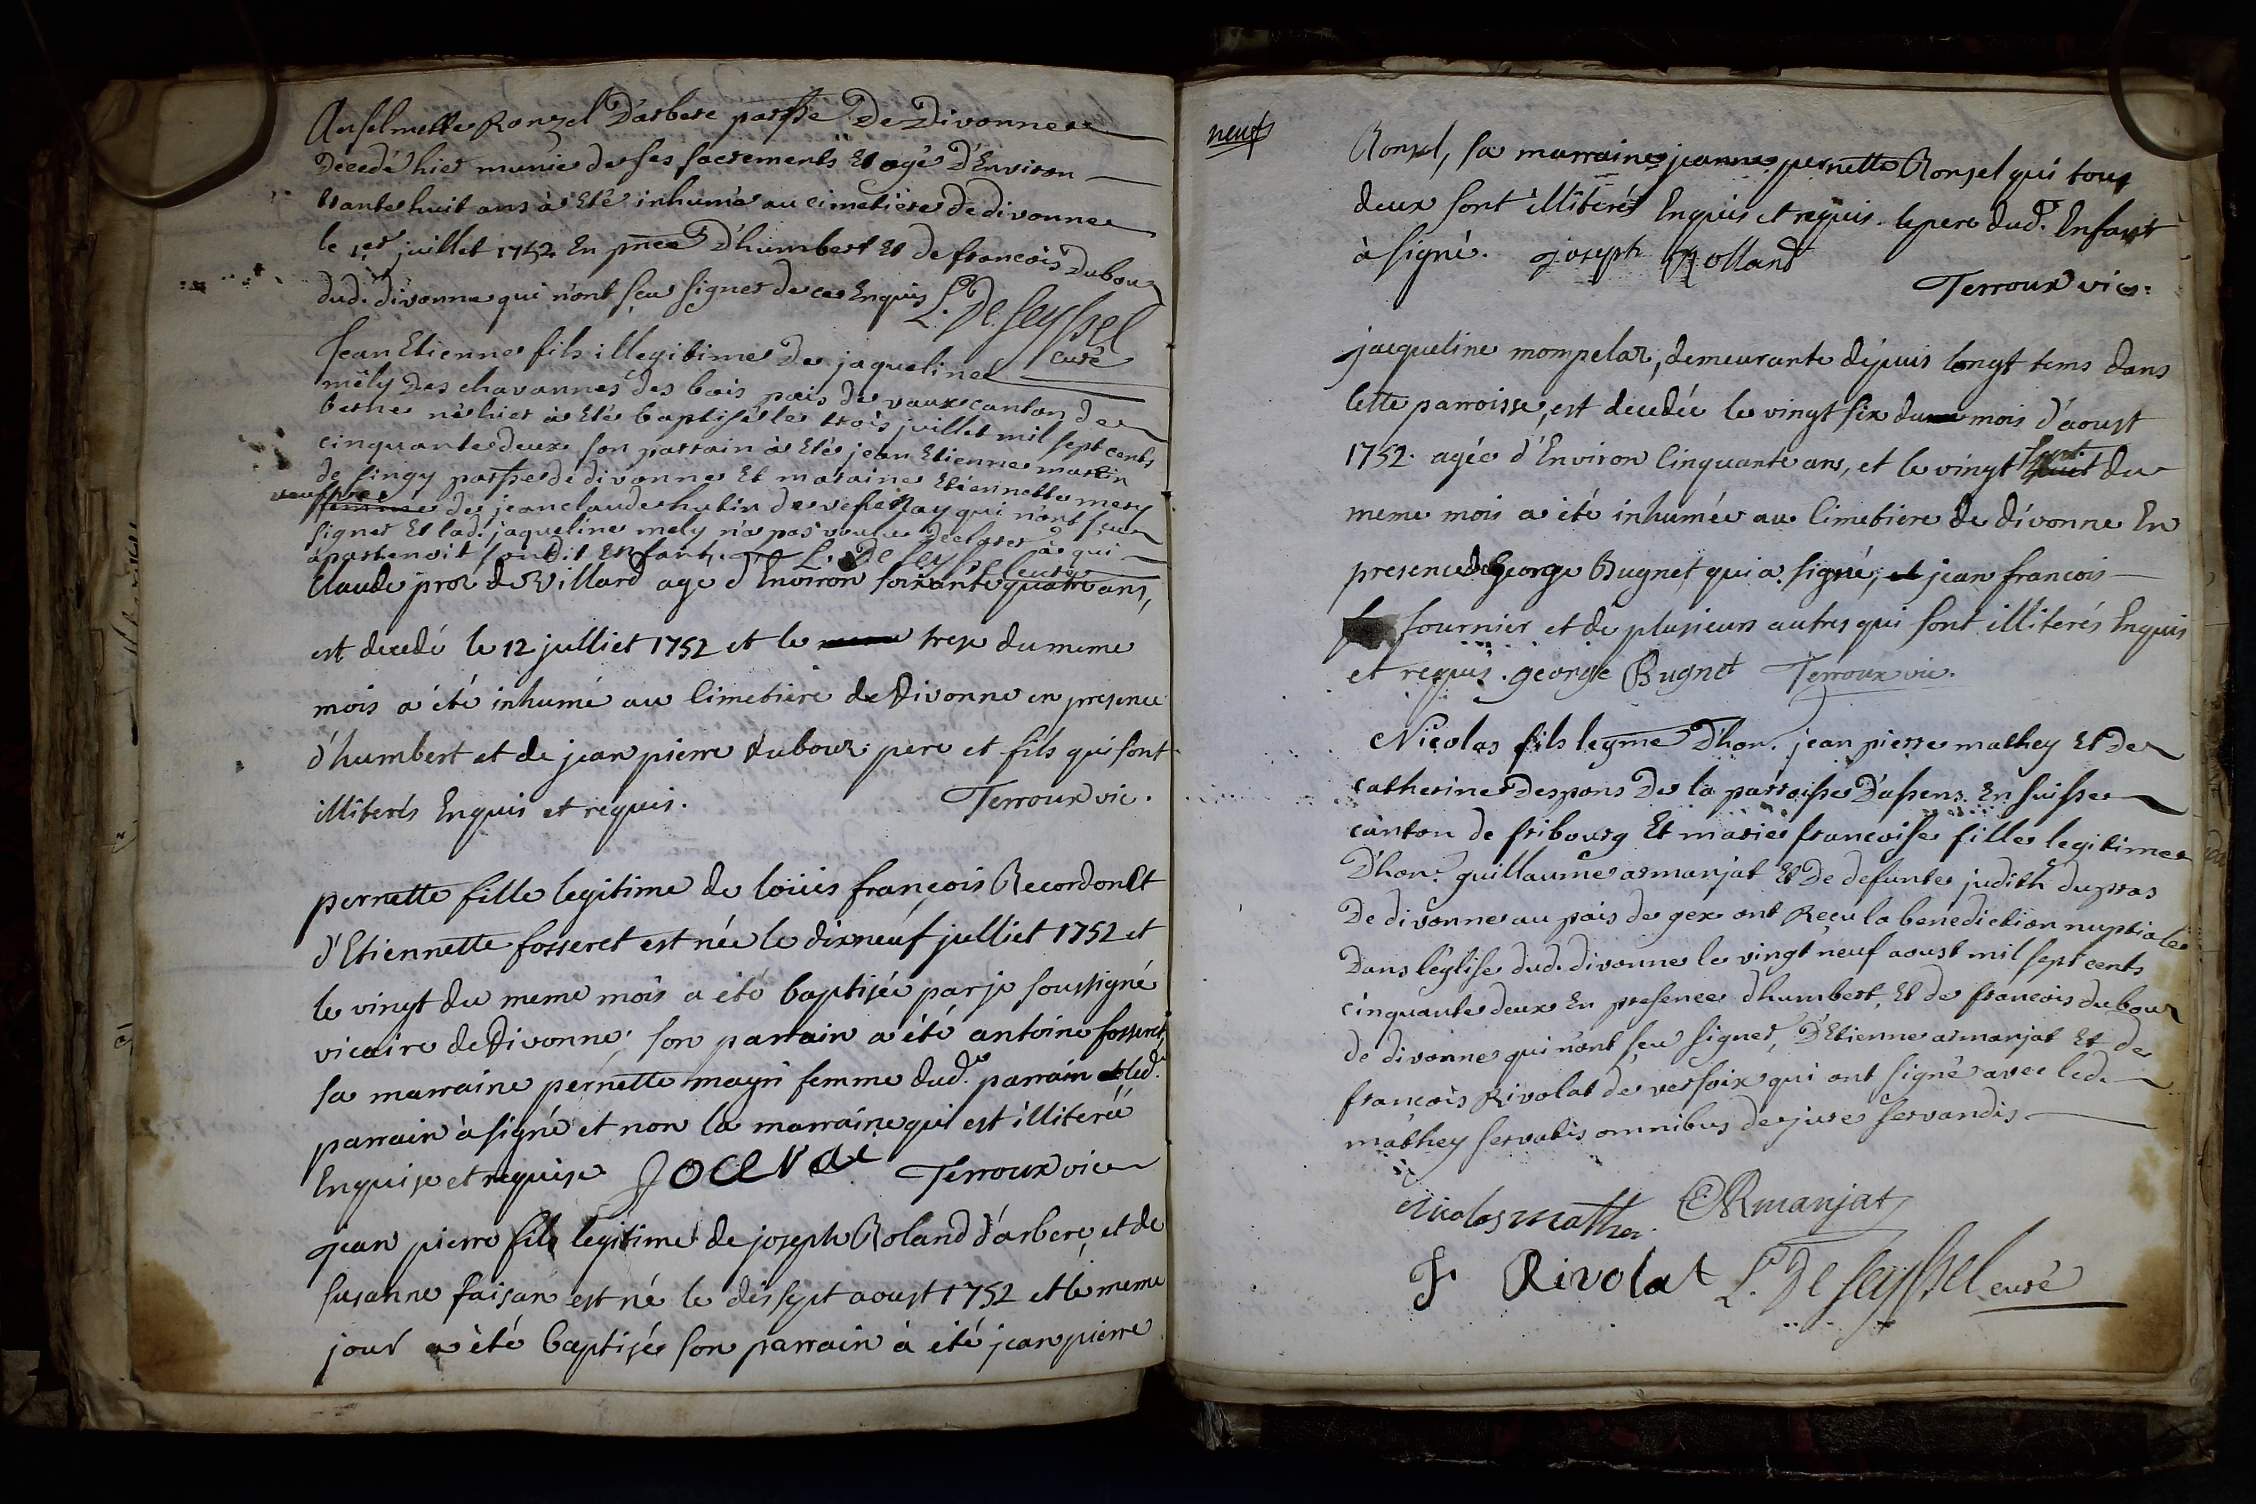 Anselmette Ronzel D'arbere parsse De Divonnes
Decedé hier munie de ses sacrements Et agé D'Environ
trante huit ans à Eté inhumé au cimetiere de divonne
le 1er juillet 1752 En pnce D'humbert Et de francois Dubour
dud. divonne qui n'ont sçu signer de ce Enquis L. De Seyssel
curé
Jean Etienne fils illegitime De jaqueline
mêly Des chavannes des bois païs de vaux canton de
berne né hier à Eté baptisé le trois juillet mil sept cents
cinquante deux son parrain à Eté jean Etienne martin
de singy parsse de divonne Et maraine Etiennette mery
veufve femme de jean claude hutin de vesenay qui n'ont sçu
signer Et lad. jaqueline mely n'a pas voulu Declarer à qui
apartenoit son dit Enfant. L. De Seyssel curé
Claude proz de Villard agé d'Environ soixante quatre ans,
est decedé le 12 julliet 1752 et le treze du meme
mois a été inhumé au Cimetiere de Divonne en presence
d'humbert et de jean pierre dubour pere et fils qui sont
illiterés Enquis et requis. Terroux vic.
pernette fille legitime de loüis françois Recordon Et
d'Etiennette fosseret est née le dixneuf julliet 1752 et
le vingt du meme mois a été baptisée par je soussigné
vicaire de Divonne; son parrain a été antoine fosseret,
sa marraine pernette mayri femme dud. parrain led.
parrain à signé et non la marraine qui est illiterée
Enquise et requise Terroux vic
jean pierre fils legitime de joseph Roland d'arbere, et de
susanne faisan est né le dissept aoust 1752 et le meme
jour a été baptisé son parrain à été jean pierre
neuf
Ronzel, sa marraine jeanne pernette Ronzel qui tous
deux sont illiterés Enquis et requis. le pere dud. Enfant
à signé. joseph Rolland
Terroux vic.
jacqueline mompelar, demeurante dépuis longt tems dans
cette parroisse, est decedée le vingt six du mois d'aoust
1752. agée d'Environ Cinquante ans, et le vingt huit du
meme mois a été inhumée au Cimetiere de divonne En
presence de George Bugnet qui a signé, et jean francois
fournier et de plusieurs autres qui sont illiterés Enquis
et requis. george Bugnet Terroux vic.
Nicolas fils legme D'hon. jean pierre mathey Et de
catherine Despons De la parroisse D'assens En suisse
canton de fribourg Et marie francoise fille legitime
D'hon. guillaume armanjat Et De defunte judith dupras
De divonne au païs de gex ont Reçu la benediction nuptiale
Dans l'église dud. divonne le vingt neuf aoust mil sept cents
cinquante deux En presence d'humbert Et de francois dubour
de divonne qui n'ont sçu signer, D'Etienne armanjat Et de
françois Rivolat de versoix qui ont signé avec led.
mathey servatis omnibus de jure servandis
Nicolas mathei E Armanjat
F Rivolat L. De Seyssel curé